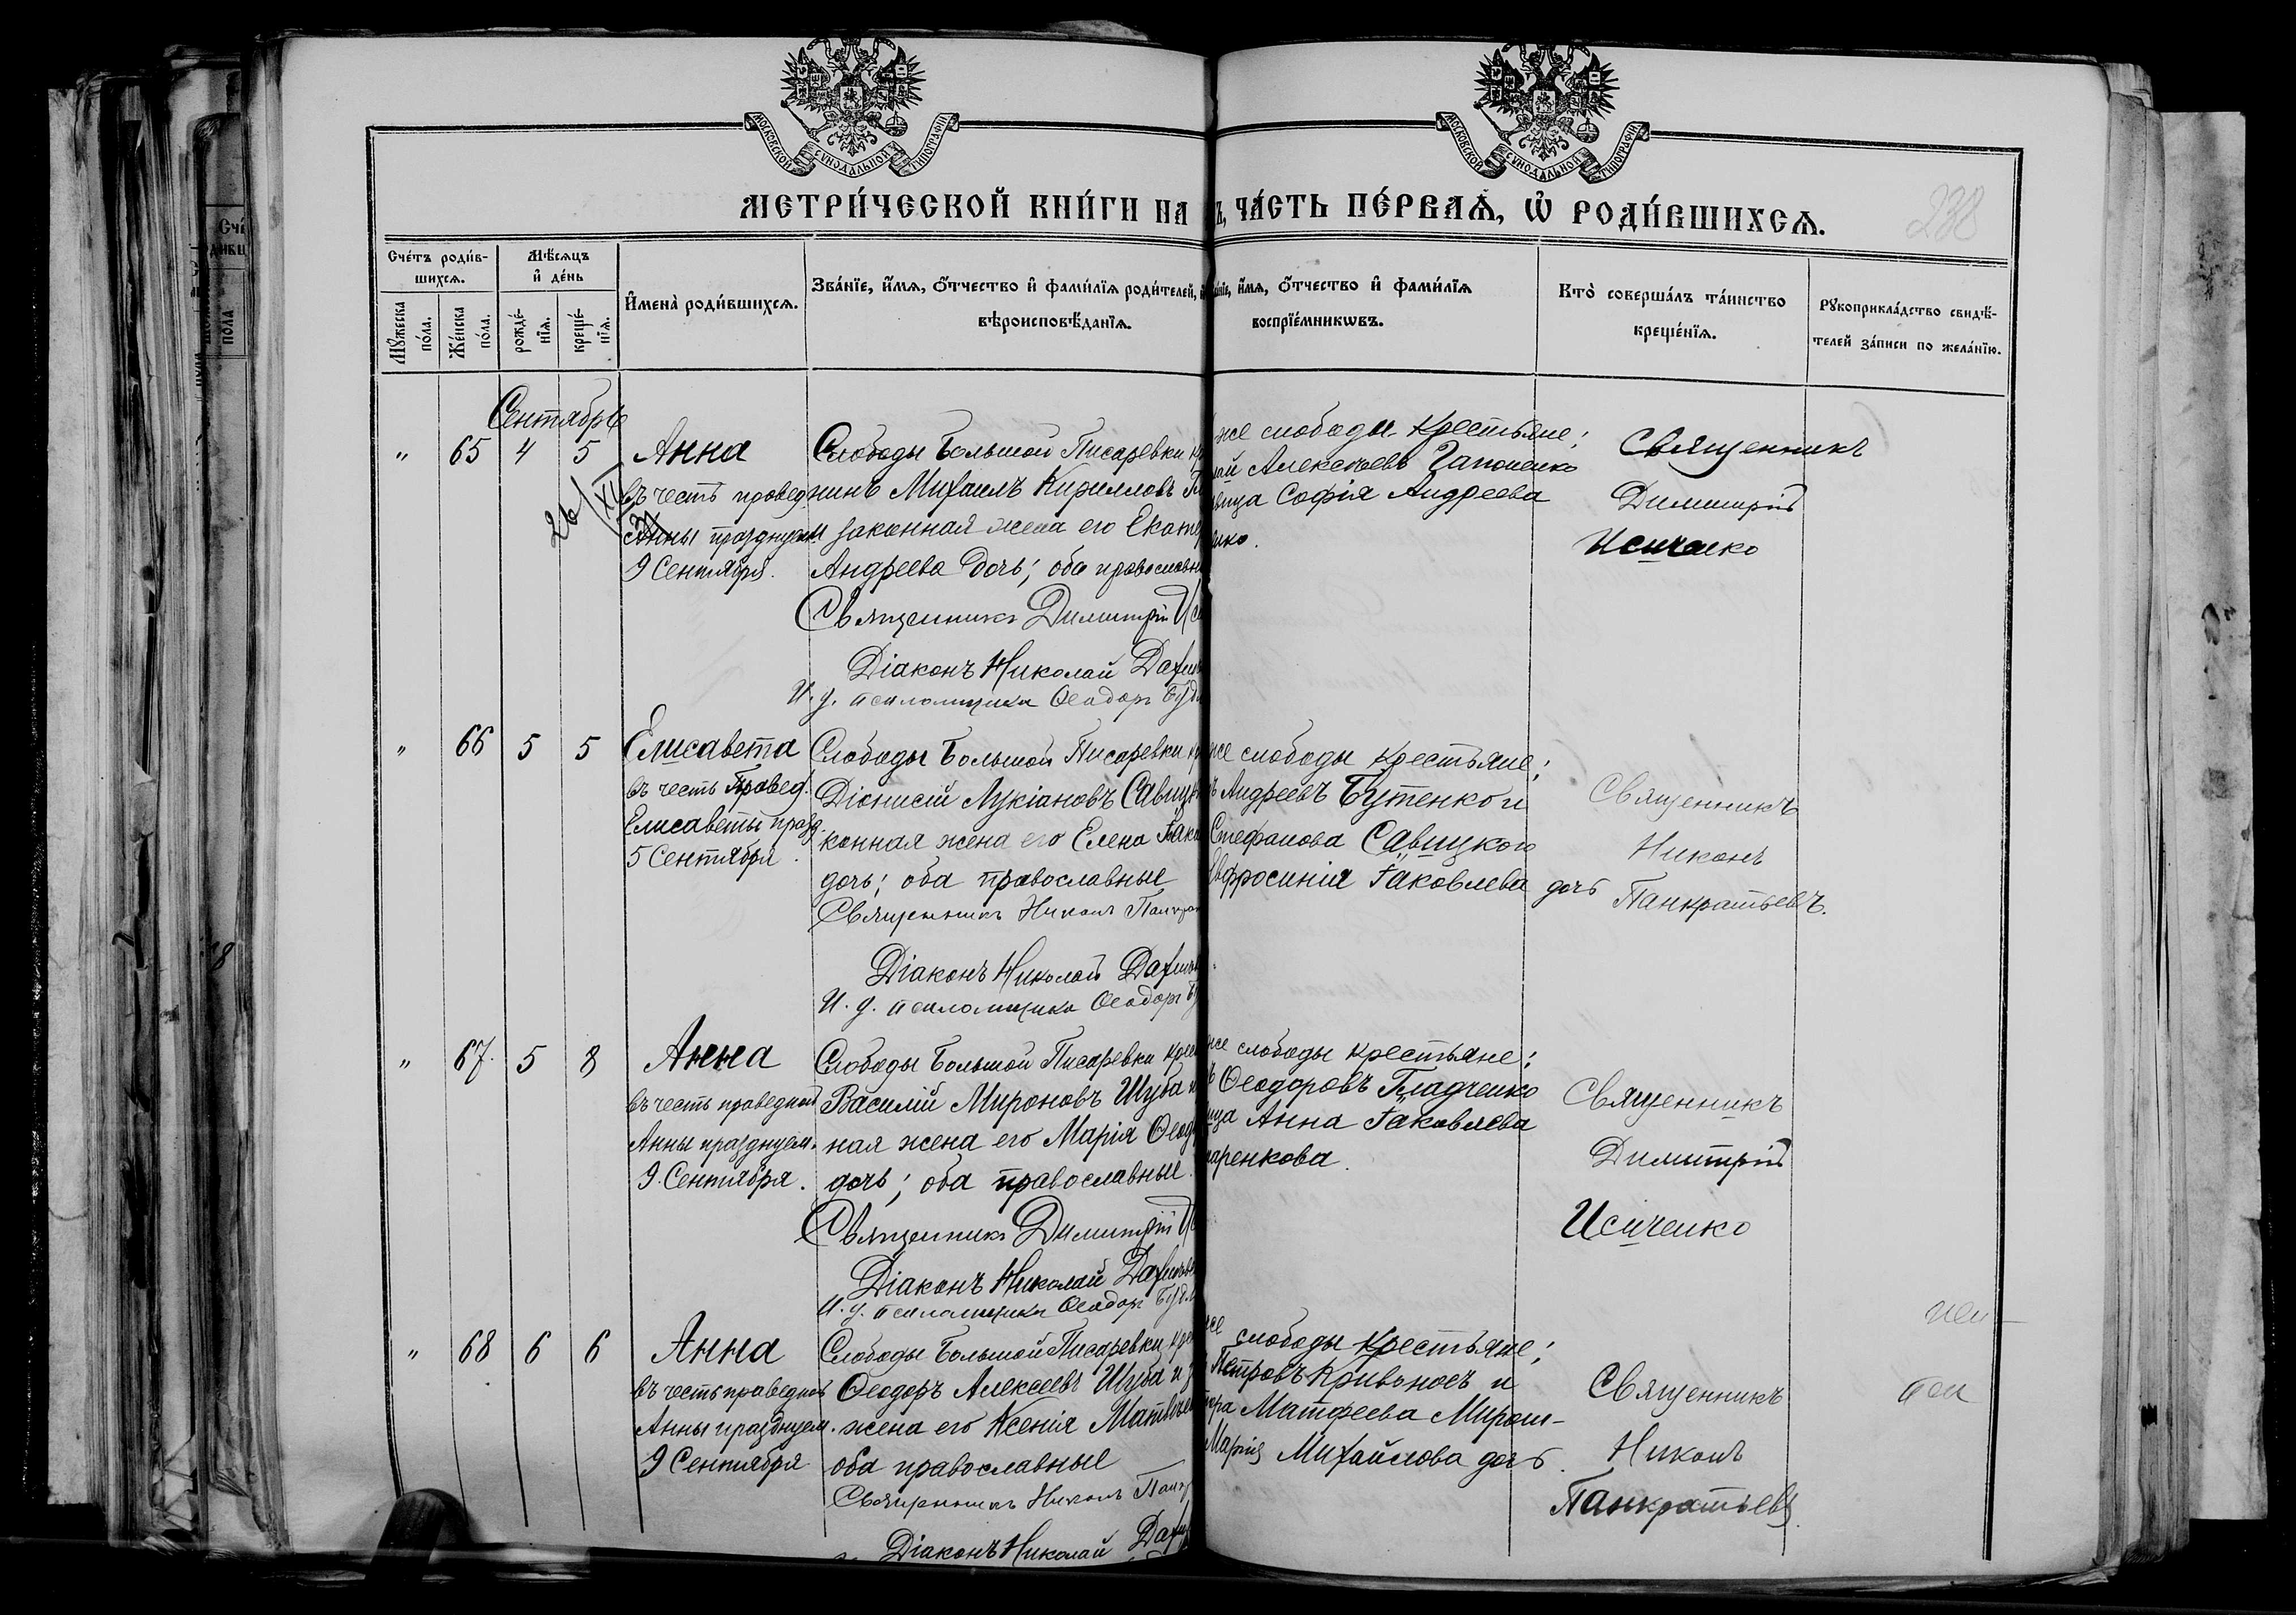 МОСКОВСКОЙ СУНОДАЛЬНОЙ ТИПОГРАФІИ
МОСКОВСКОЙ СУНОДАЛЬНОЙ ТИПОГРАФІИ
МЕТРИ́ЧЕСКОЙ КНИ́ГИ НА
Ъ, ЧА́СТЬ ПЕ́РВАѦ, Ѡ҆ РОДИ́ВШИХСѦ.
238
Сче́тъ роди́в-
шихсѧ.
Мꙋ́жеска по́ла.
Же́нска по́ла.
Мѣ́сѧцъ
и҆ де́нь
рожде́-
нїѧ.
креще́-
нїѧ.
И҆мена̀ роди́вшихсѧ.
Зва́нїе, и҆́мѧ, ѻ҆́тчество и҆ фами́лїѧ роди́телей,
вѣроисповѣ́данїѧ.
и҆́мѧ, ѻ҆́тчество и҆ фами́лїѧ
воспрїе́мникѡвъ.
Кто̀ соверша́лъ та́инство
креще́нїѧ.
Рꙋкоприкла́дство свидѣ́-
телей за́писи по жела́нїю.
Сентябрь
" 65 4 5 Анна
въ честь правед.
Анны празднуем.
9 Сентября.
26/XI
Слободы Большой Писаревки
нинъ Михаилъ Кирилловъ
и законная жена его
Андреева дочь; оба
Священникъ Димитрій
Діаконъ Николай
И. д. псаломщика Ѳеодоръ
же слободы крестьяне;
Алексѣевъ Гапоненко
София Андреева
Священникъ
Димитрій
Исиченко
" 66 5 5 Елисавета
въ честь правед.
Елисаветы празд.
5 Сентября.
Слободы Большой Писаревки
Діонисій Лукіановъ
конная жена его Елена
дочь; оба православные
Священникъ Никонъ
Діаконъ Николай
И. д. псаломщика Ѳеодоръ
же слободы крестьяне;
Андреевъ Бутенко и
Стефанова Савицкого
Іаковлева дочь
Священникъ
Никонъ
Панкратьевъ.
" 67. 5 8 Анна
въ честь праведной
Анны празднуем.
9 Сентября.
Слободы Большой Писаревки
Василій Мироновъ Шуба
ная жена его Марія
дочь; оба православные.
Священникъ Димитрій
Діаконъ Николай
И. д. псаломщика Ѳеодоръ
же слободы крестьяне;
Ѳеодоровъ Гладченко
Анна Іаковлева
аренкова.
Священникъ
Димитрій
Исиченко
" 68 6 6 Анна
въ честь праведной
Анны празднуем.
9 Сентября
Слободы Большой Писаревки
Ѳеодоръ Алексеевъ Шуба и
жена его Ксенія
оба православные
Священникъ Никонъ
Діаконъ Николай
слободы крестьяне;
Петровъ Кривоносъ и
Матфеева Мирош-
Михайлова дочь.
Священникъ
Никонъ
Панкратьевъ.